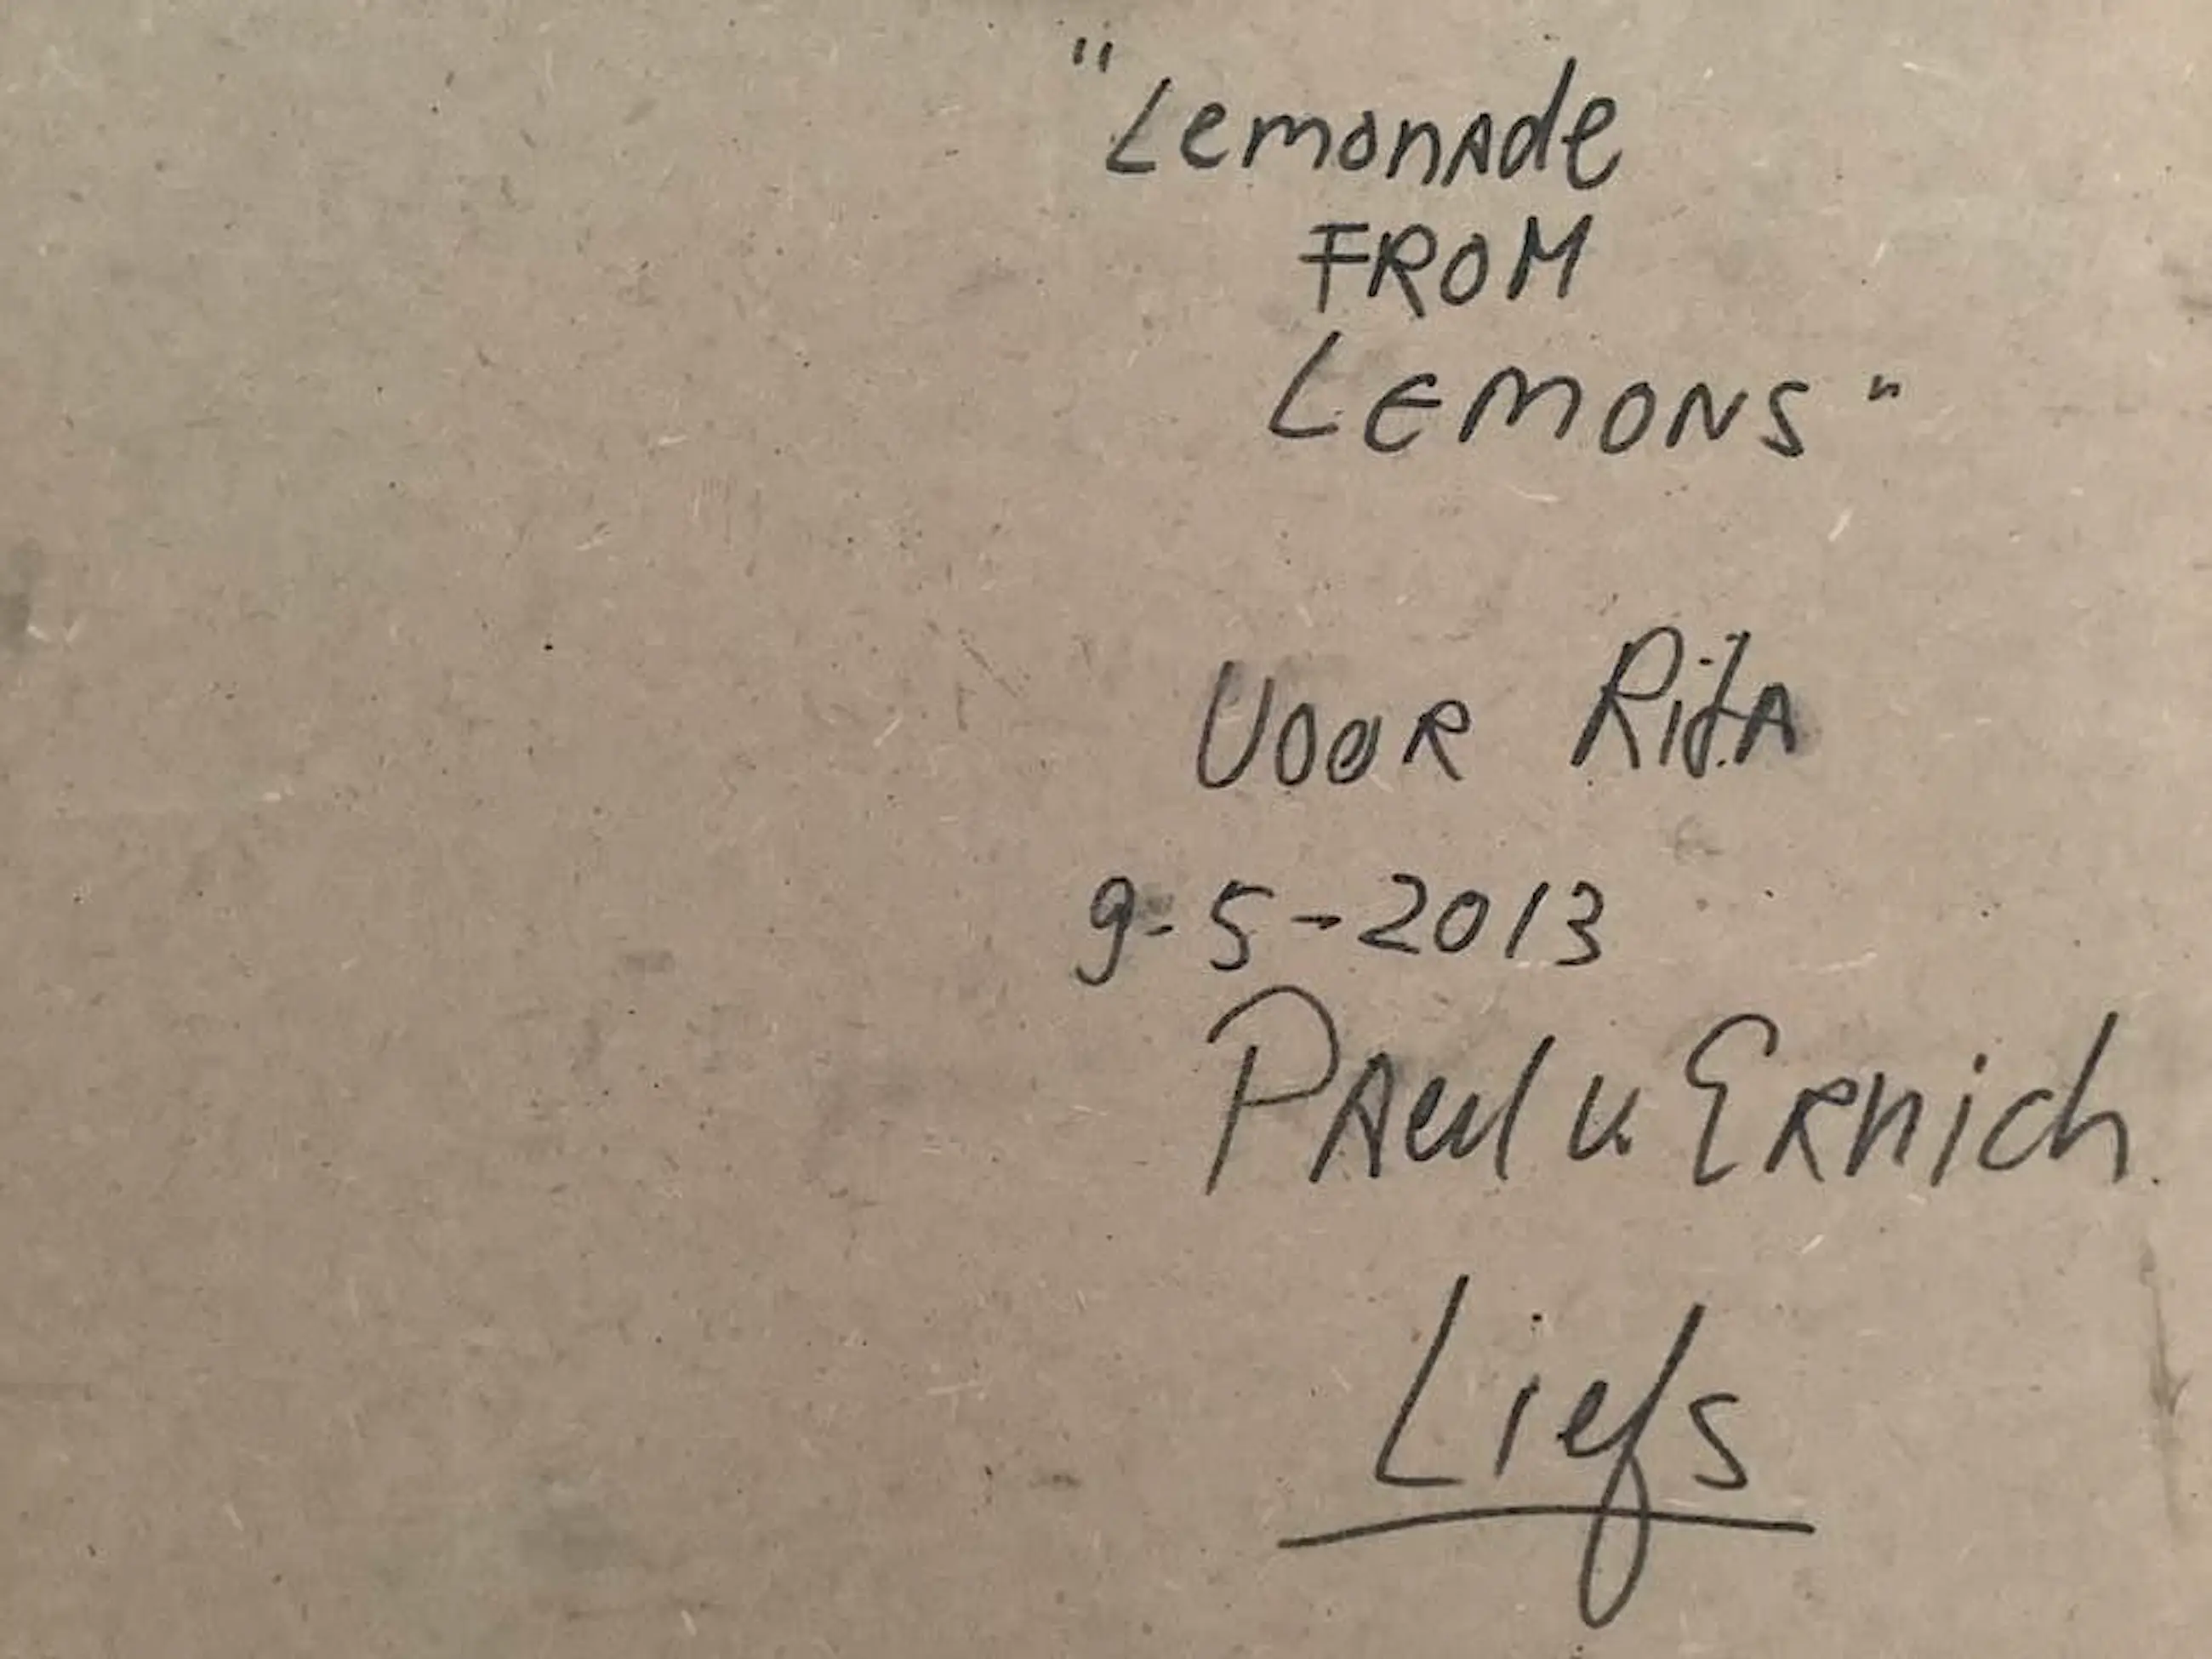 "Lemonade
FROM
LEMONS"
VOOR Rita
9-5-2013
Paul v. Ernich
Liefs